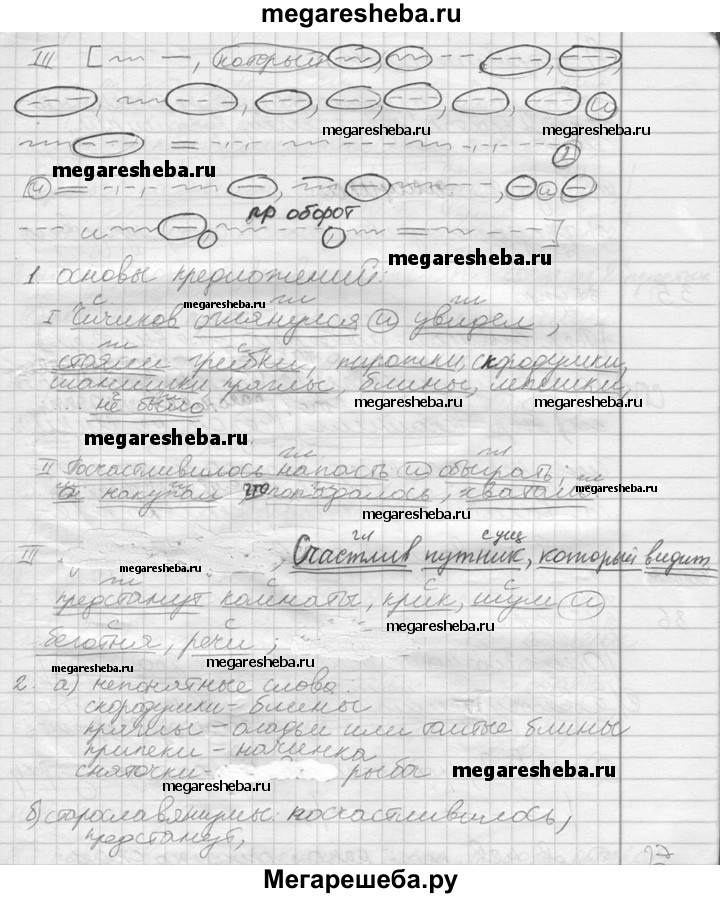 megaresheba.ru
III [ который
megaresheba.ru megaresheba.ru
и
megaresheba.ru 2
и и
пр оборот
и 1 1 ]
megaresheba.ru
1. основы предложений:
megaresheba.ru
с гл гл
I Чичиков оглянулся и увидел,
гл с
стояли грибки, пирожки, скородумки,
шанишки, пряглы, блины, лепешки,
megaresheba.ru megaresheba.ru
не было
megaresheba.ru
гл гл
II Посчастливилось напасть и обирать;
megaresheba.ru
накупал, что попадалось, хватало
megaresheba.ru
гл сущ
III Счастлив путник, который видит
megaresheba.ru
гл с с с
предстанут комнаты, крик, шум и
megaresheba.ru
с с
беготня, речи;
megaresheba.ru
2. а) непонятные слова:
скородумки - блины
пряглы - оладьи или толстые блины
припеки - начинка
сняточки - рыба
megaresheba.ru
б) старославянизмы: посчастливилось,
предстанут,
27
Мегарешеба.ру